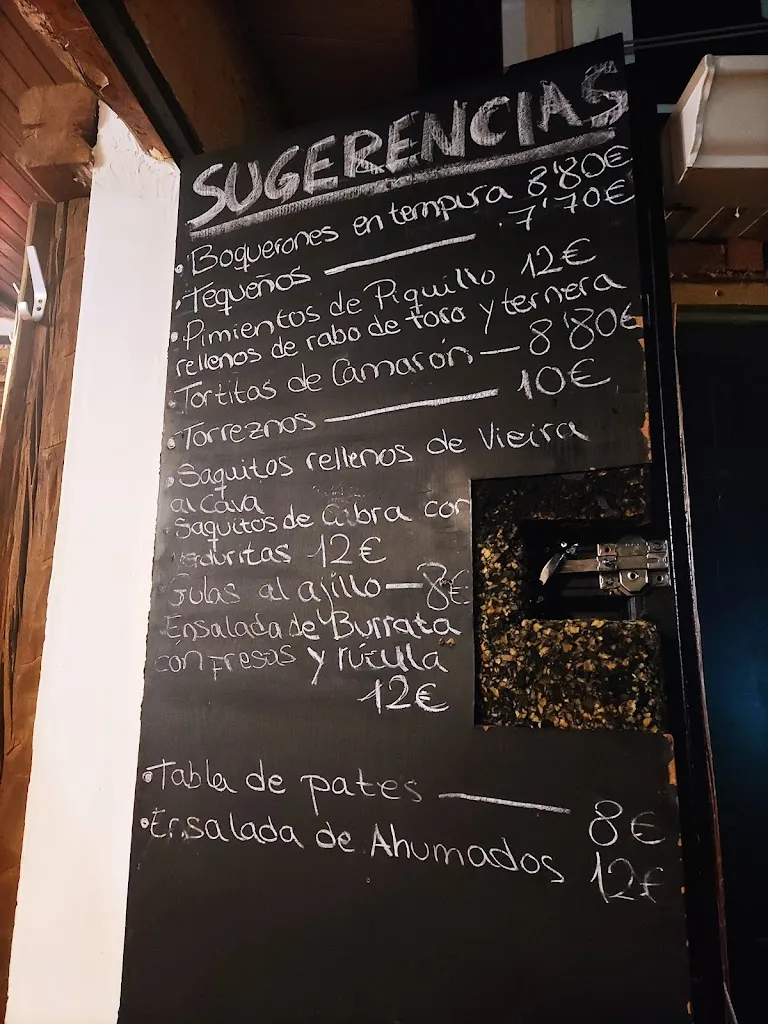 SUGERENCIAS
• Boquerones en tempura 8'80€
• Tequeños — 7'70€
• Pimientos de Piquillo 12€
rellenos de rabo de toro y ternera
• Tortitas de Camarón — 8'80€
• Torreznos — 10€
• Saquitos rellenos de Vieira
al Cava
• Saquitos de Cabra con
verduritas 12€
Gulas al ajillo — 8€
Ensalada de Burrata
con fresas y rúcula
12€
• Tabla de pates — 8€
• Ensalada de Ahumados 12€